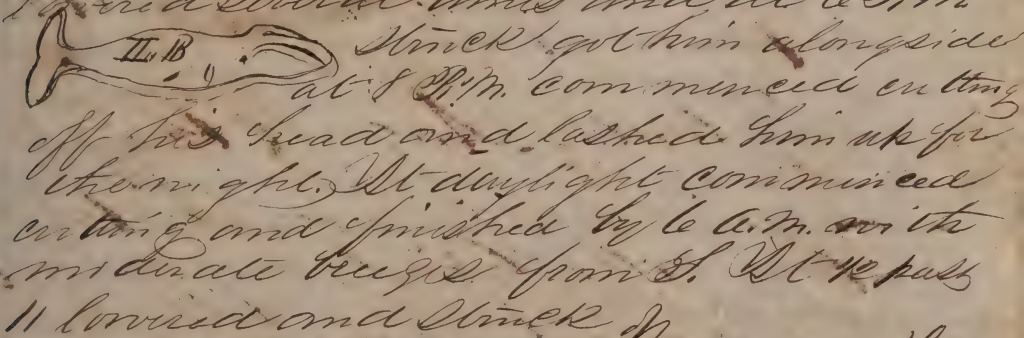 lowered several times and at 6 P.M.
II. B struck got him alongside
at 8 P.M. commenced cutting
off his head and lashed him up for
the night. At daylight commenced
cutting and finished by 6 A.M. with
moderate breezes from S. At ½ past
11 lowered and struck